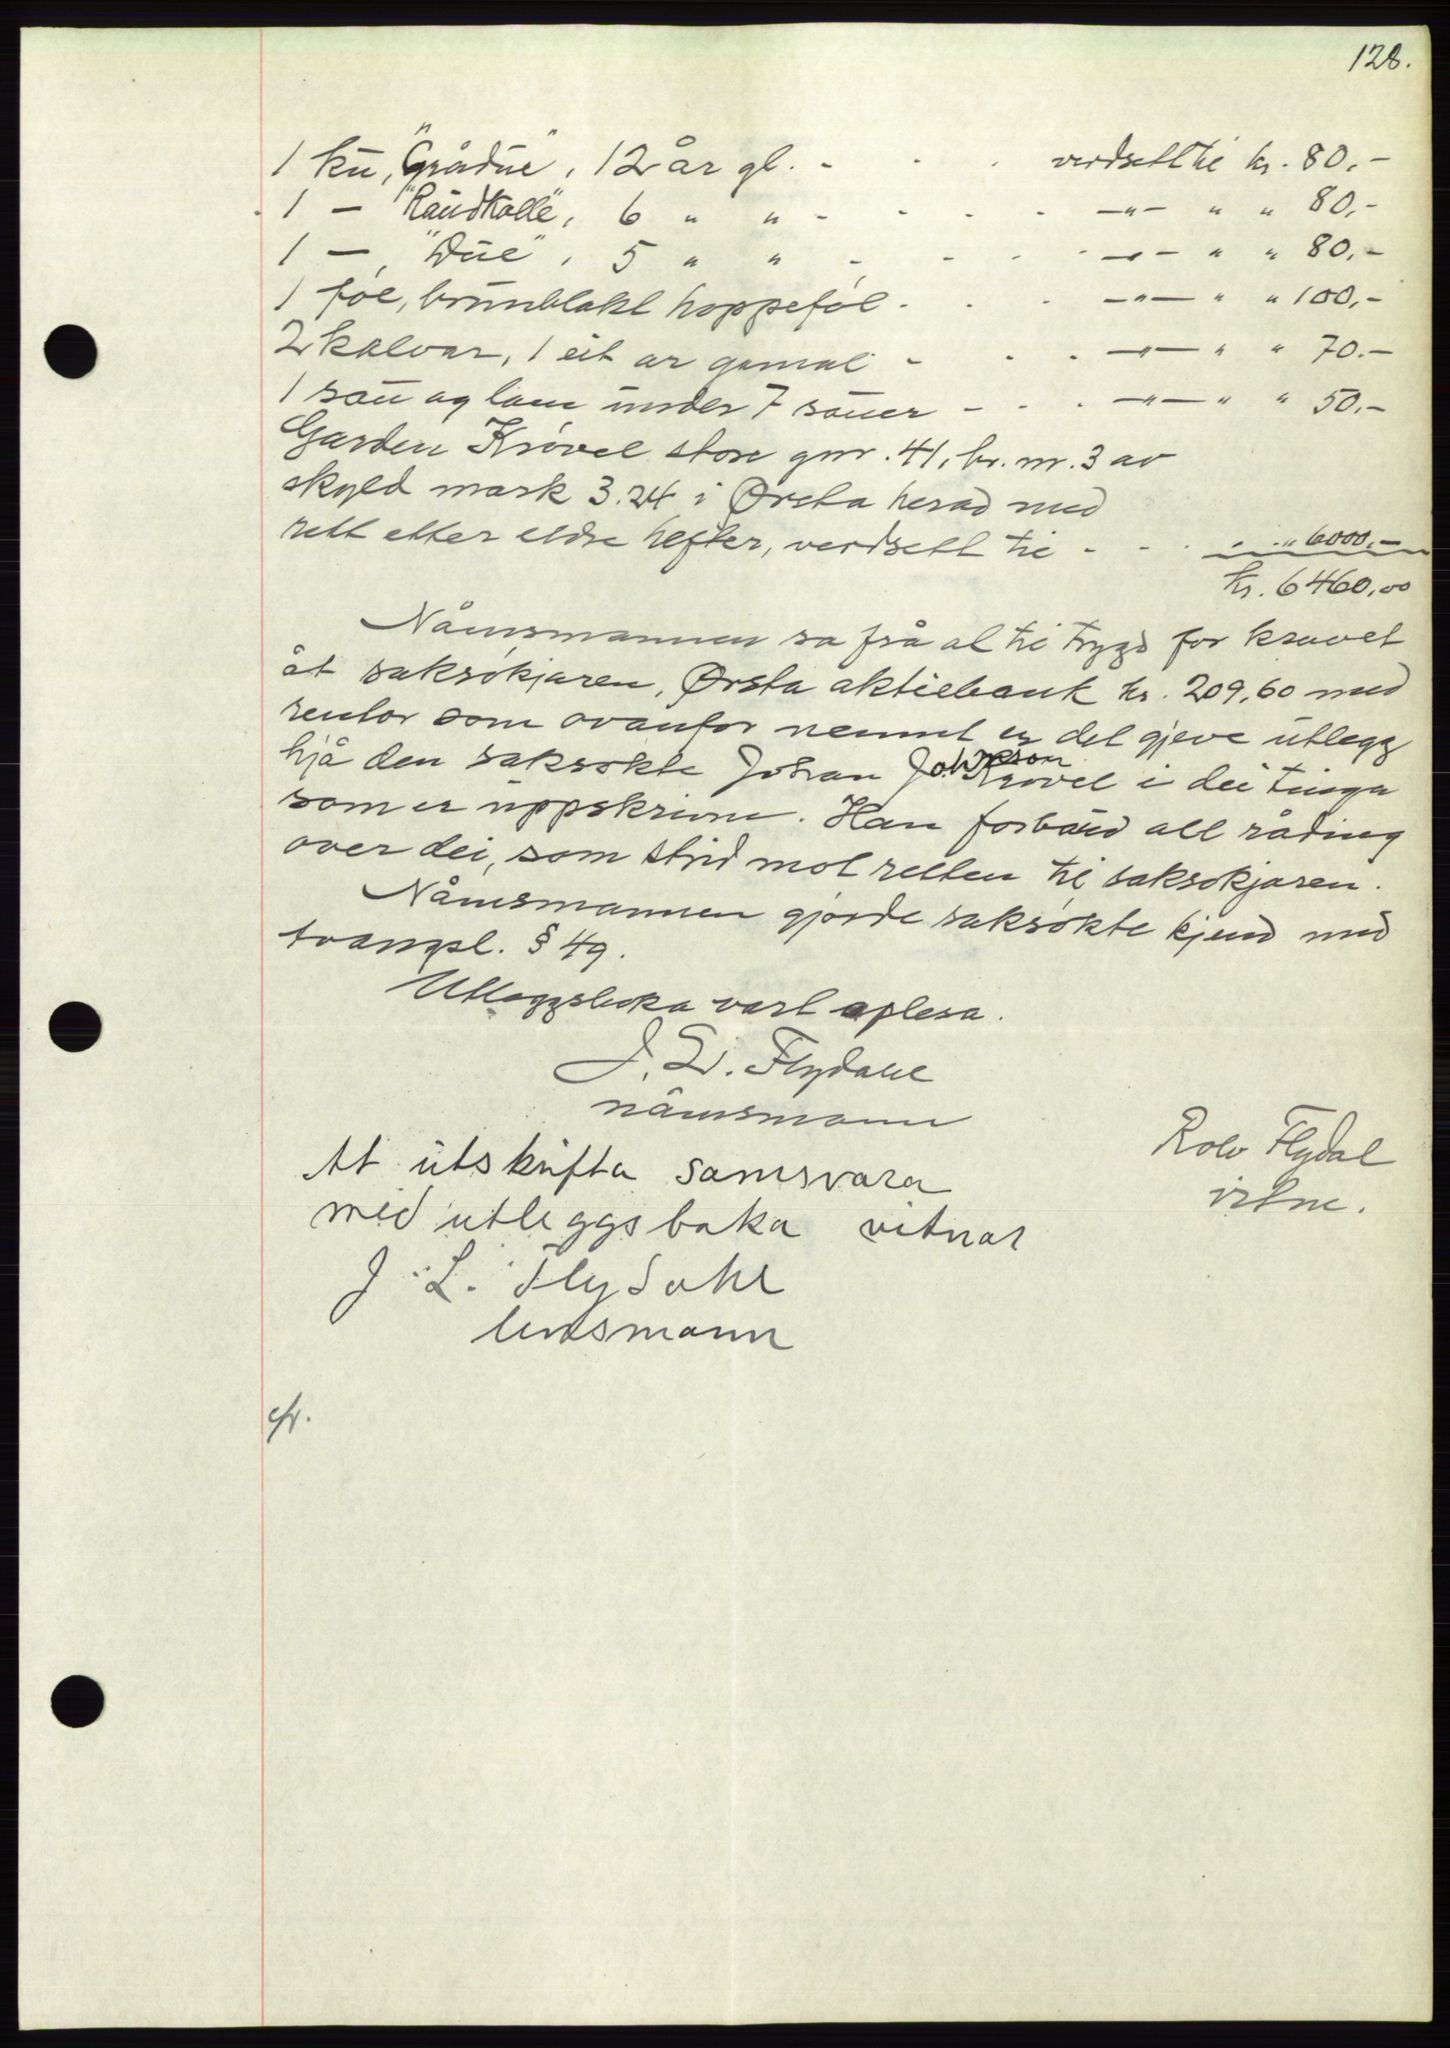 128.
1 ku, "Grådue", 12 år gl. - - - verdsett til kr. 80,-
1 - "Raudkolle", 6 " " - - - - -"- " " 80,-
1 -, "Due", 5 " " - - - - -"- " " 80,-
1 føl, brunblakt hoppeføl - - - -"- " " 100,-
2 kalvar, 1 eit år gamal - - - -"- " " 70.-
1 sau og lam under 7 sauer - - - -"- " " 50.-
Garden Krøvel store gnr. 41, br. nr. 3 av
skyld mark 3.24 i Ørsta herad med
rett etter eldre hefter, verdsett til - - - - " 6000,-
kr. 6460,00
Nåmsmannen sa frå at til trygd for kravet
åt saksøkjaren, Ørsta aktiebank kr. 209,60 med
rentor som ovanfor nemnt er det gjeve utlegg
hjå den saksøkte Johan Johnson Krøvel i dei tinga
som er uppskrivne. Han forbaud all råding
over dei, som strid mot retten til saksøkjaren.
Nåmsmannen gjorde saksøkte kjend med
tvangsl. § 49.
Utleggsboka vart oplesa.
J. L. Flydahl
nåmsmann
Rolv Flydal
vitne.
At utskrifta samsvara
med utleggsboka vitnar
J. L. Flydahl
lensmann